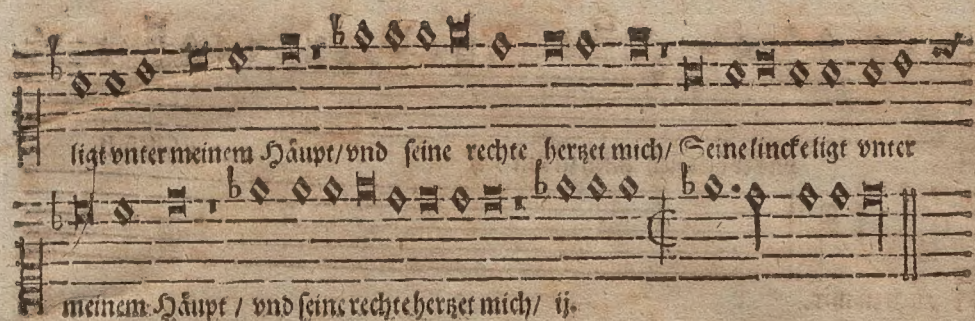 ligt vnter meinem Häupt/ vnd seine rechte hertzet mich/ Seine lincke ligt vnter
meinem Häupt / vnd seine rechte hertzet mich/ ij.